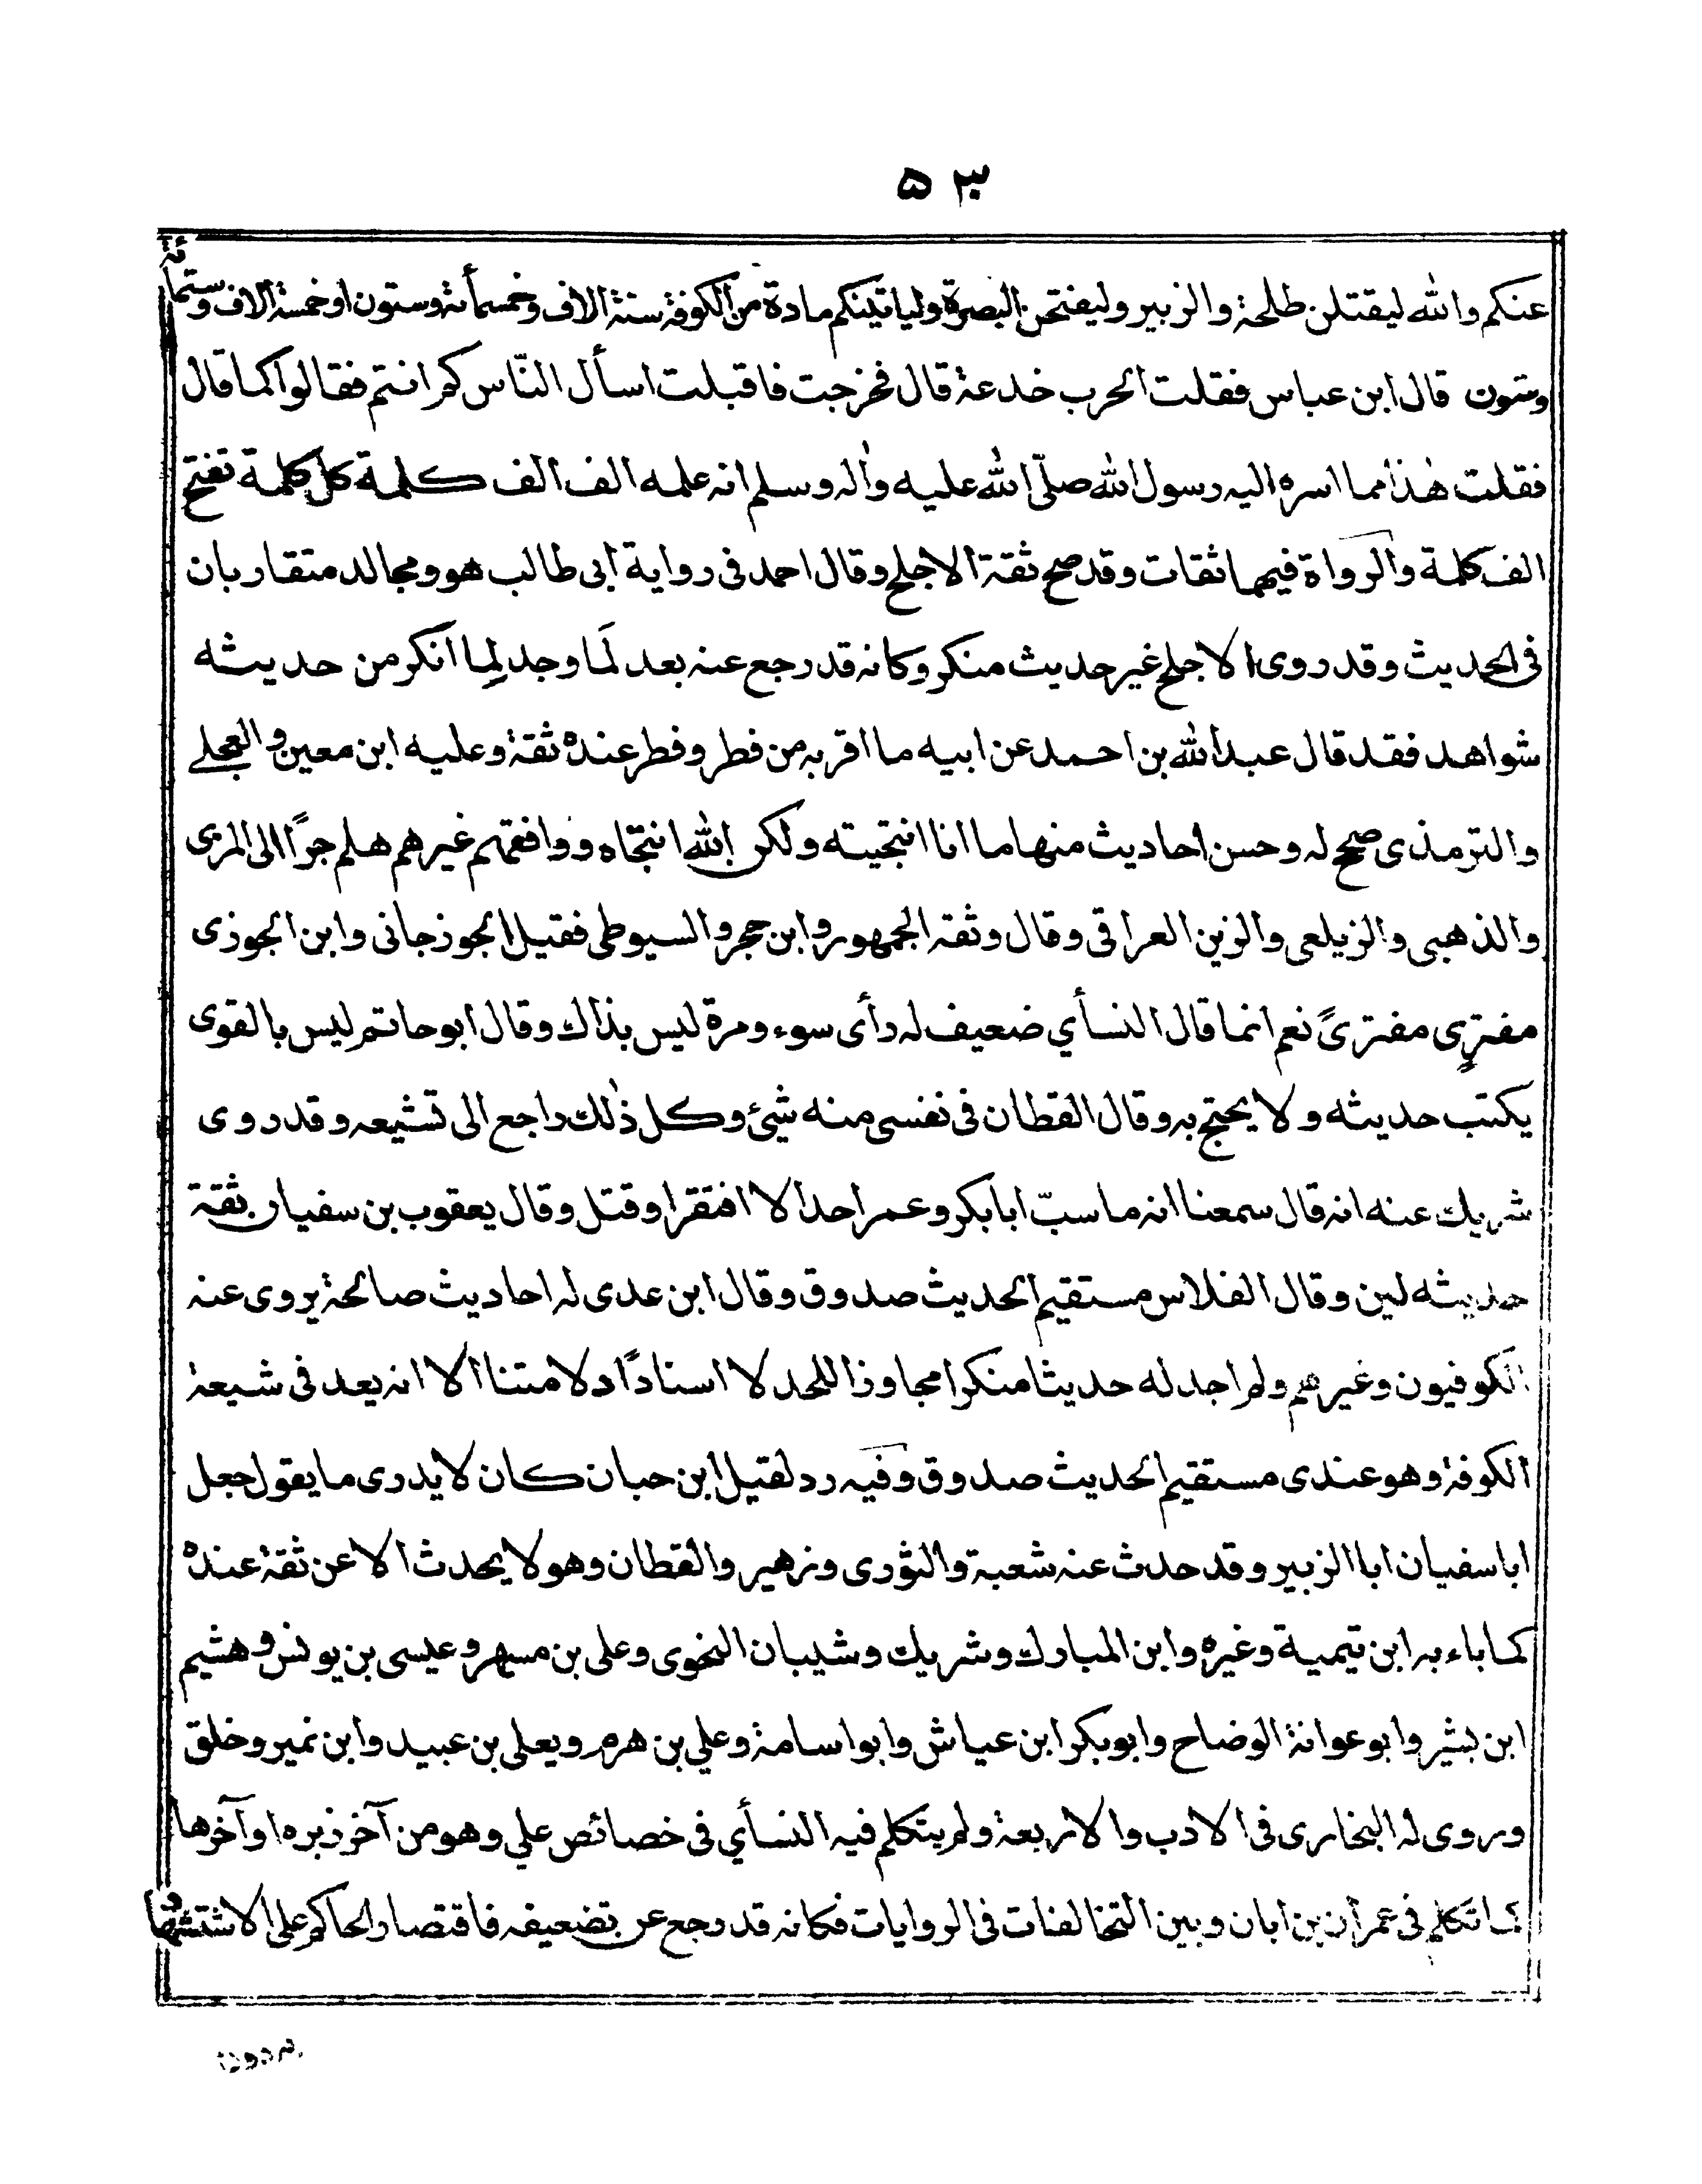 ۵۳
عنكم والله ليقتلن طلحة والزبير وليفتحن البصرة ولياتينكم مادة من الكوفة ستة الاف وخمسمأئة وستون او خمسة الاف وستمائة
وستون قال ابن عباس فقلت الحرب خدعة قال فخرجت فاقبلت اسأل النّاس كم انتم فقالوا كما قال
فقلت هٰذا مما اسره اليه رسول الله صلّى الله عليه واٰله وسلم انه علمه الف الف كلمة كل كلمة تفتح
الف كلمة والرواة فيها ثقات وقد صح ثقة الاجلح وقال احمد فى رواية ابى طالب هو ومجالد متقاربان
فى الحديث وقد روى الاجلح غير حديث منكر وكانه قد رجع عنه بعد لَما وجد لِما انكر من حديثه
شواهد فقد قال عبد الله بن احمد عن ابيه ما اقربه من فطر وفطر عنده ثقة وعليه ابن معين والعجلے
والترمذى صحح له وحسن احاديث منها ما انا انتجيته ولكن الله انتجاه ووافقهم غيرهم هلم جرًا الى المزى
والذهبى والزيلعى والزين العراقى وقال وثقه الجمهور وابن حجر والسيوطى فقيل الجوزجانى وابن الجوزى
مفترٍى مفترىً نعم انما قال النسأي ضعيف له رأى سوء ومرة ليس بذاك وقال ابو حاتم ليس بالقوى
يكتب حديثه ولا يحتج به وقال القطان فى نفسى منه شيئ وكل ذٰلك راجع الى تشيعه وقد روى
شريك عنه انه قال سمعنا انه ما سبّ ابا بكر وعمر احد الا افتقر او قتل وقال يعقوب بن سفيان ثقة
حديثه لين وقال الفلاس مستقيم الحديث صدوق وقال ابن عدى له احاديث صالحة يروى عنه
الكوفيون وغيرهم ولم اجد له حديثا منكرا مجاوزا للحد لا اسنادًا ولا متنا الا انه يعد فى شيعة
الكوفة وهو عندى مستقيم الحديث صدوق وفيه رد لقيل ابن حبان كان لا يدرى ما يقول جعل
ابا سفيان ابا الزبير وقد حدث عنه شعبة والثورى وزهير والقطان وهو لا يحدث الا عن ثقة عنده
كما باء به ابن تيمية وغيره وابن المبارك وشريك وشيبان النحوى وعلى بن مسهر وعيسى بن يونس وهشيم
ابن بشير وابو عوانة الوضاح وابو بكر ابن عياش وابو اسامة وعلي بن هرم ويعلى بن عبيد وابن نمير وخلق
وروى له البخارى فى الادب والاربعة ولم يتكلم فيه النسأي فى خصائص علي وهو من آخر زبره او آخرها
كما تكلم فى عمران بن ابان وبين التخالفات فى الروايات فكانه قد رجع عن تضعيفه فاقتصار الحاكم على الاستشهاد